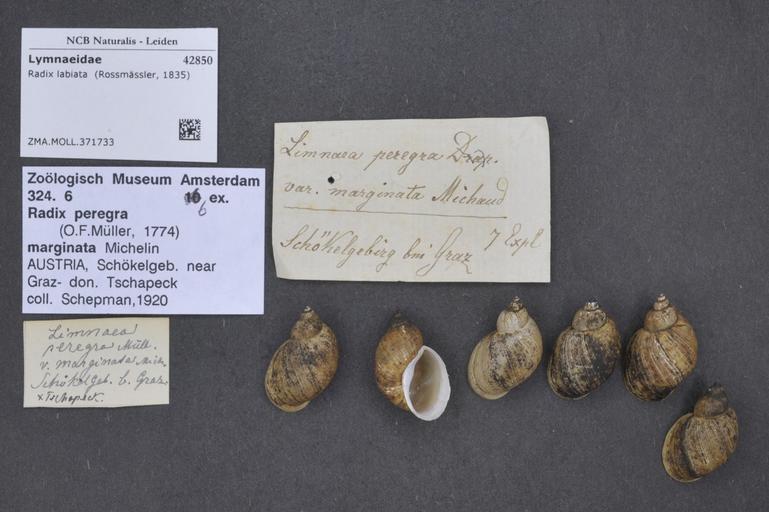 NCB Naturalis - Leiden
Lymnaeidae 42850
Radix labiata (Rossmässler, 1835)
ZMA.MOLL.371733
Zoölogisch Museum Amsterdam
324. 6 6 ex.
Radix peregra
(O.F.Müller, 1774)
marginata Michelin
AUSTRIA, Schökelgeb. near
Graz- don. Tschapeck
coll. Schepman,1920
Limnaea
peregra Müll.
v. marginata Mich.
Schökelgeb. b. Graz.
x Tschapeck.
Limnaea peregra Drap.
var. marginata Michaud
7 Expl
Schökelgebirg bei Graz